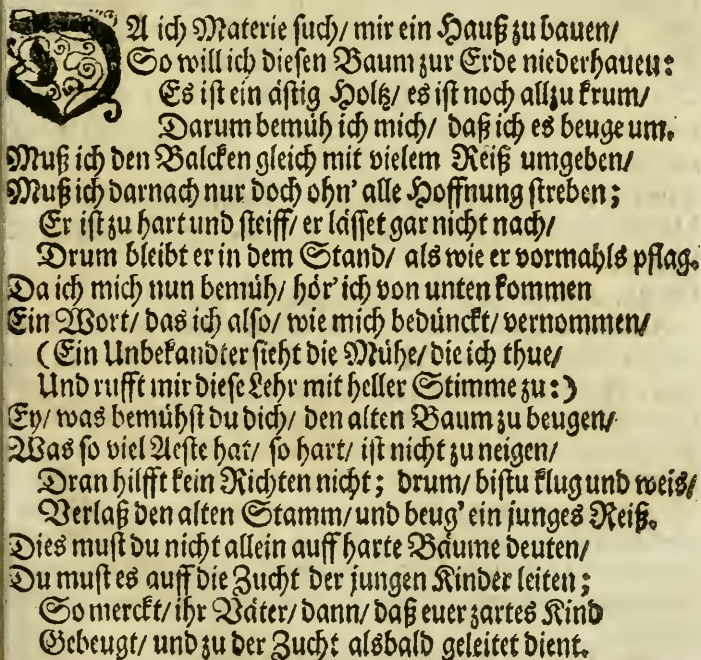 DA ich Materie such/ mir ein Hauß zu bauen/
So will ich diesen Baum zur Erde niederhauen:
Es ist ein ästig Holtz/ es ist noch allzu krum/
Darum bemüh ich mich/ daß ich es beuge um.
Muß ich den Balcken gleich mit vielem Reiß umgeben/
Muß ich darnach nur doch ohn' alle Hoffnung streben;
Er ist zu hart und steiff/ er lässet gar nicht nach/
Drum bleibt er in dem Stand/ als wie er vormahls pflag.
Da ich mich nun bemüh/ hör' ich von unten kommen
Ein Wort/ das ich also/ wie mich bedünckt/ vernommen/
(Ein Unbekandter sieht die Mühe/ die ich thue/
Und rufft mir diese Lehr mit heller Stimme zu:)
Ey/ was bemühst du dich/ den alten Baum zu beugen/
Was so viel Aeste hat/ so hart/ ist nicht zu neigen/
Dran hilfft kein Richten nicht; drum/ bistu klug und weis/
Verlaß den alten Stamm/ und beug' ein junges Reiß.
Dies must du nicht allein auff harte Bäume deuten/
Du must es auff die Zucht der jungen Kinder leiten;
So merckt/ ihr Väter/ dann/ daß euer zartes Kind
Gebeugt/ und zu der Zucht alsbald geleitet dient.